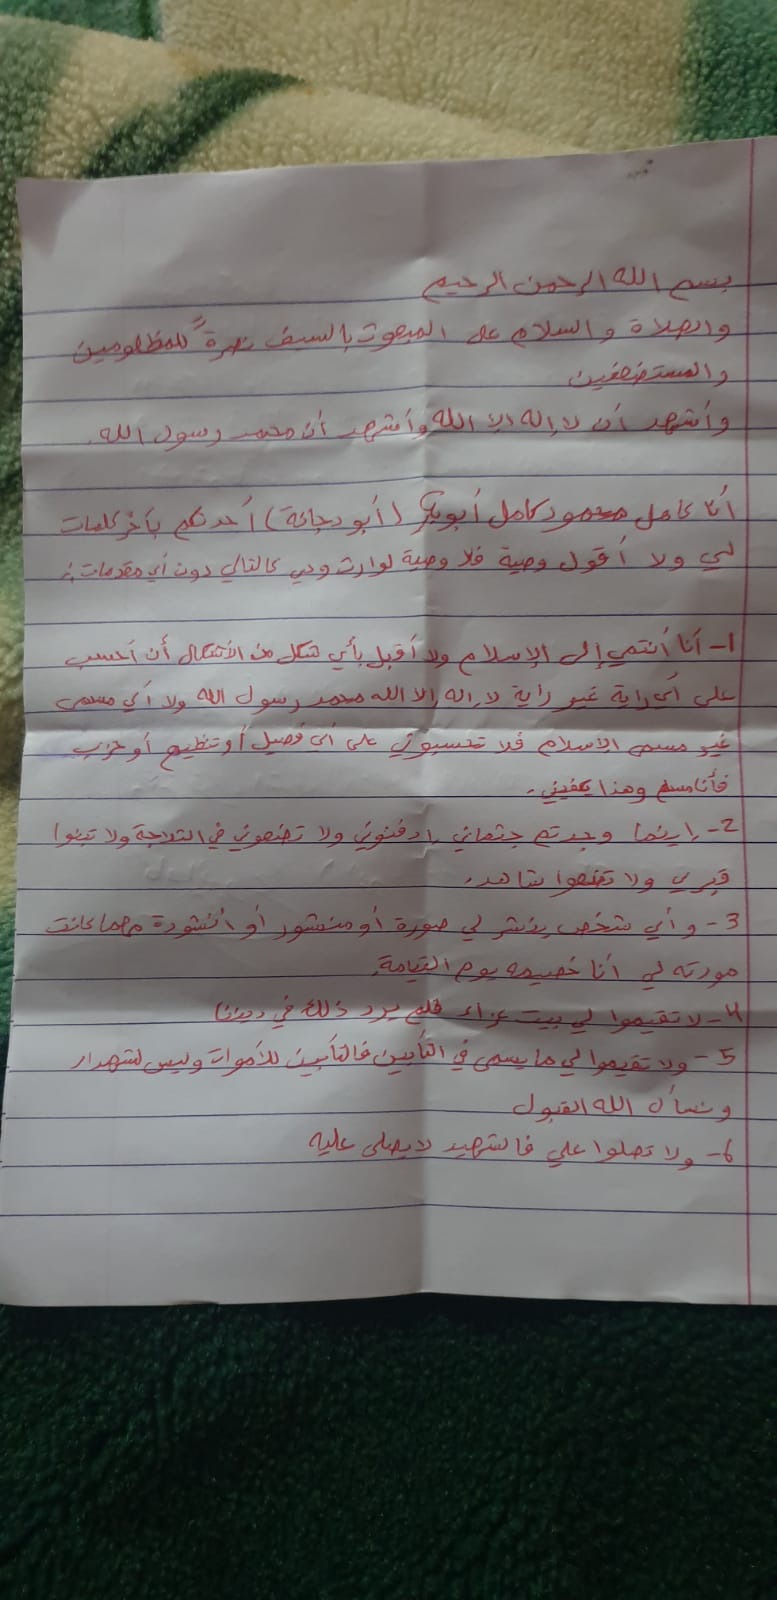 بسم الله الرحمن الرحيم
والصلاة والسلام على المبعوث بالسيف نصرةً للمظلومين
والمستضعفين
وأشهد أن لا إله إلا الله وأشهد أن محمد رسول الله.
أنا كامل محمود كامل أبوبكر (أبو دجانة) أحدثكم بآخر كلمات
لي ولا أقول وصية فلا وصية لوارث وهي كالتالي دون أي مقدمات :
1- أنا أنتمي إلى الإسلام ولا أقبل بأي شكل من الأشكال أن أحسب
على أي راية غير راية لا إله إلا الله محمد رسول الله ولا أي مسمى
غير مسمى الإسلام فلا تحسبوني على أي فصيل أو تنظيم أو حزب
فأنا مسلم وهذا يكفيني.
2- إينما وجدتم جثماني إدفنوني ولا تضعوني في الثلاجة ولا تبنوا
قبري ولا تضعوا شاهد.
3- وأي شخص ينشر لي صورة أو منشور أو أنشودة مهما كانت
مودته لي أنا خصيمه يوم القيامة.
4- لا تقيموا لي بيت عزاء فلم يرد ذلك في ديننا
5- ولا تقيموا لي ما يسمى في التأبين فالتأبين للأموات وليس لشهداء
ونسأل الله القبول
6- ولا تصلوا علي فالشهيد لا يصلى عليه